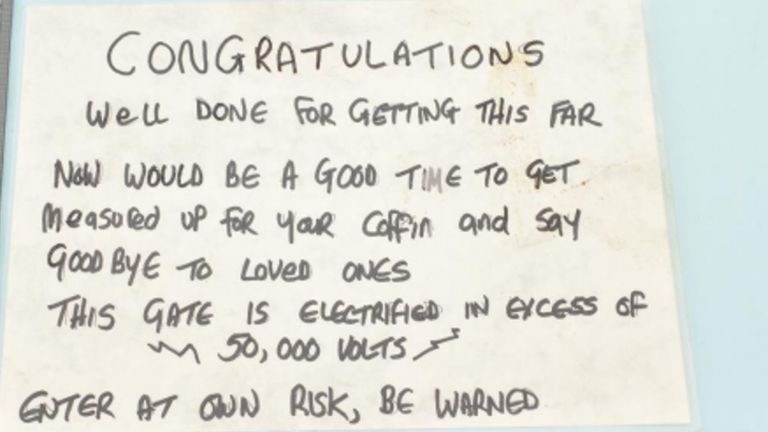 CONGRATULATIONS
WELL DONE FOR GETTING THIS FAR
NOW WOULD BE A GOOD TIME TO GET
MEASURED UP FOR YOUR COFFIN and SAY
GOODBYE TO LOVED ONES
THIS GATE IS ELECTRIFIED IN EXCESS OF
50,000 VOLTS
ENTER AT OWN RISK, BE WARNED